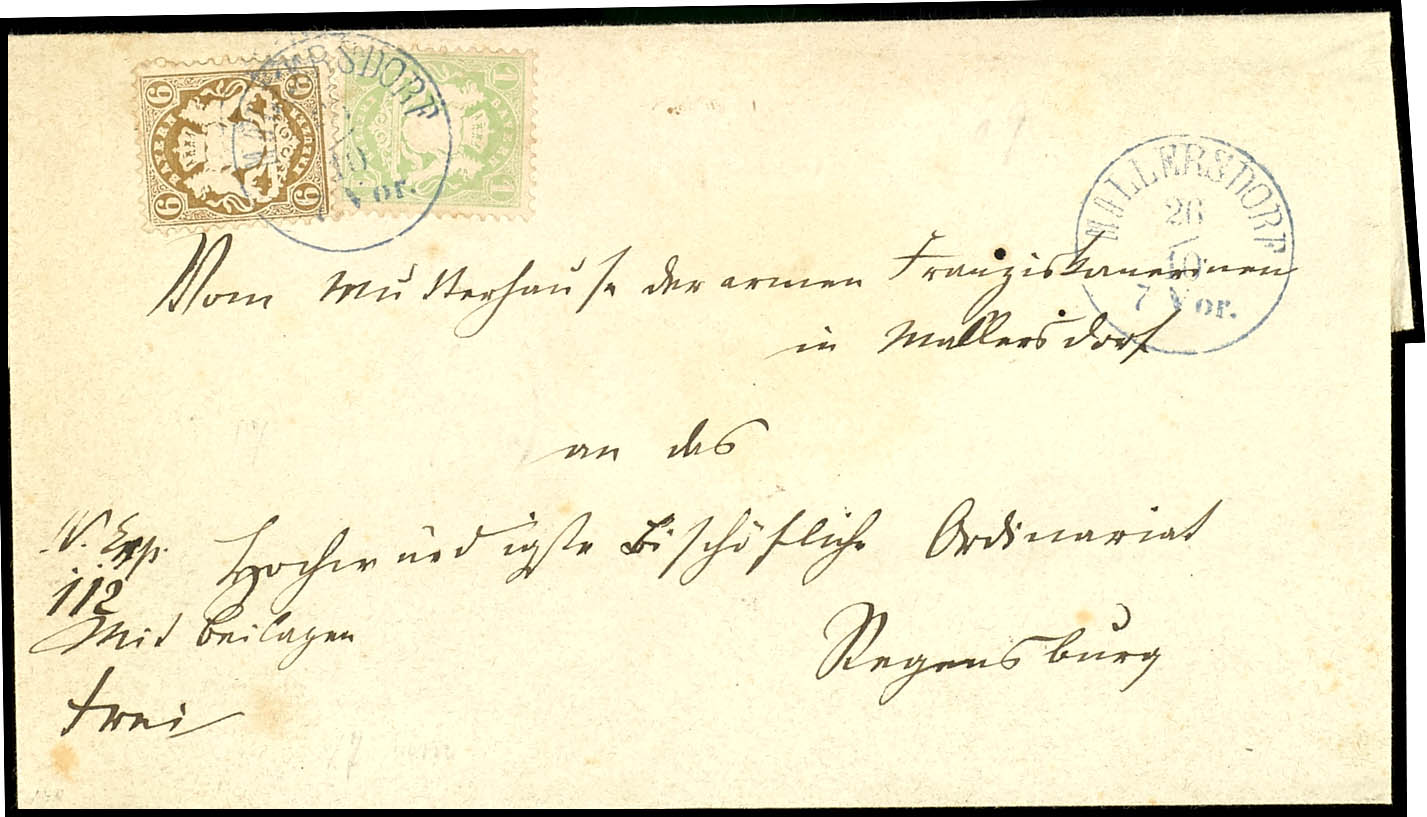 6 6 1
BAYERN BAYERN
KREUZER
6 6 1
MALLERSDORF
10
Vor.
MALLERSDORF
26
10
7 Vor.
Vom Mutterhause der armen Franziskanerinen
in Mallersdorf
an das
N. Exp. Hochwürdigste Bischöfliche Ordinariat
112
Mit Beilagen
Regensburg
frei